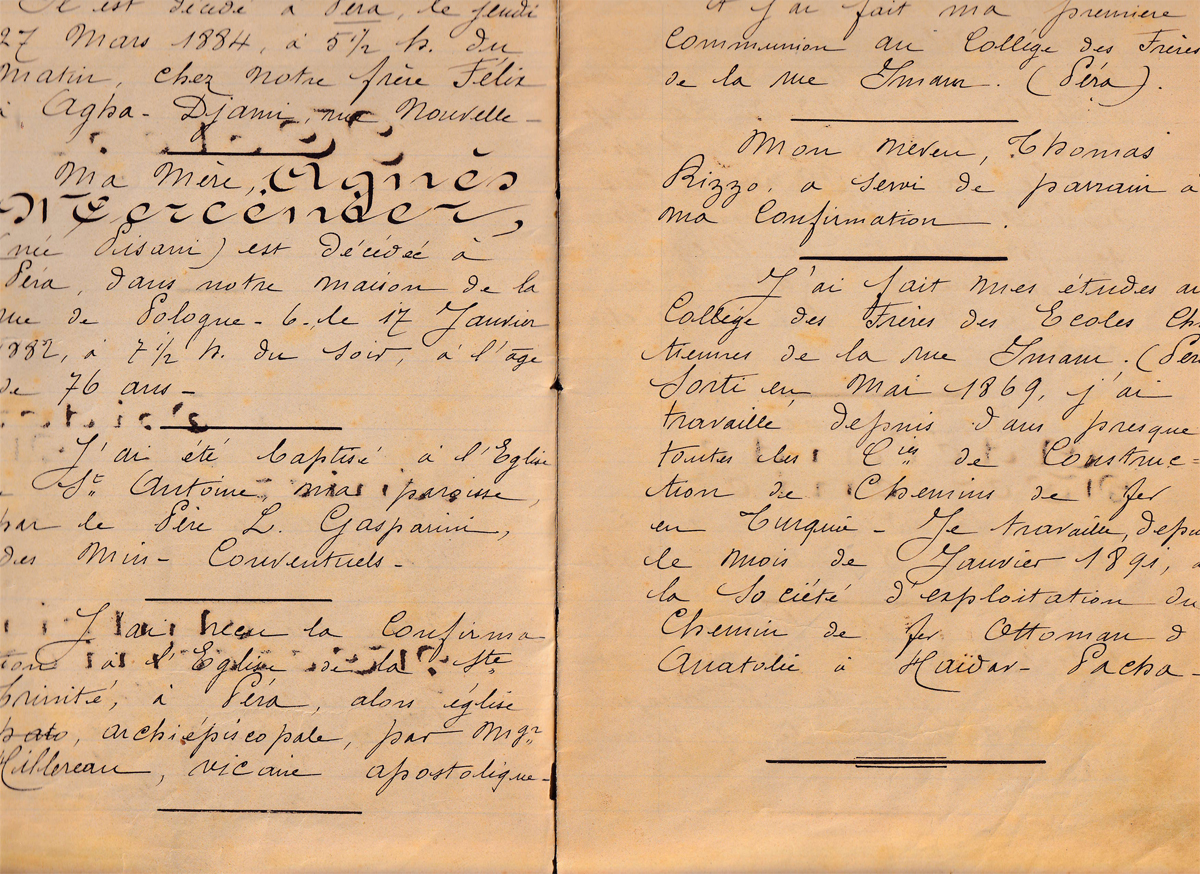 Il est décédé à Péra, le jeudi
27 Mars 1884, à 5 1/2 h. du
Matin, chez notre frère Félix
à Agha-Djami, rue Nouvelle-
Ma Mère, Agnès
Mercenier,
(née Pisani) est décédée à
Péra, dans notre maison de la
rue de Pologne-6-, le 17 Janvier
1882, à 7 1/2 h. du soir, à l'âge
de 76 ans-
J'ai été baptisé à l'Eglise
St Antoine, ma paroisse,
par le Père L. Gasparini,
des Min- Conventuels-
J'ai reçu la Confirma
tion à l'Eglise de la Ste
trinité, à Péra, alors église
archiépiscopale, par Mgr
Hillereau, vicaire apostolique-
et j'ai fait ma première
Communion au Collége des Frères
de la rue Imam. (Péra).
Mon neveu, Thomas
Rizzo, a servi de parrain à
ma Confirmation.
J'ai fait mes études au
Collège des Frères des Ecoles Ch
tiennes de la rue Imam. (Péra
Sorti en Mai 1869, j'ai
travaillé depuis dans presque
toutes les Cies de Construc=
tion de Chemins de fer
en Turquie- Je travaille, depu
le mois de Janvier 1891, à
la Société d'exploitation du
Chemin de fer Ottoman d
Anatolie à Haïdar-Pacha-